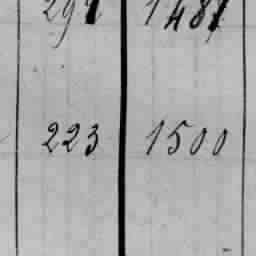 291 1487
223 1500